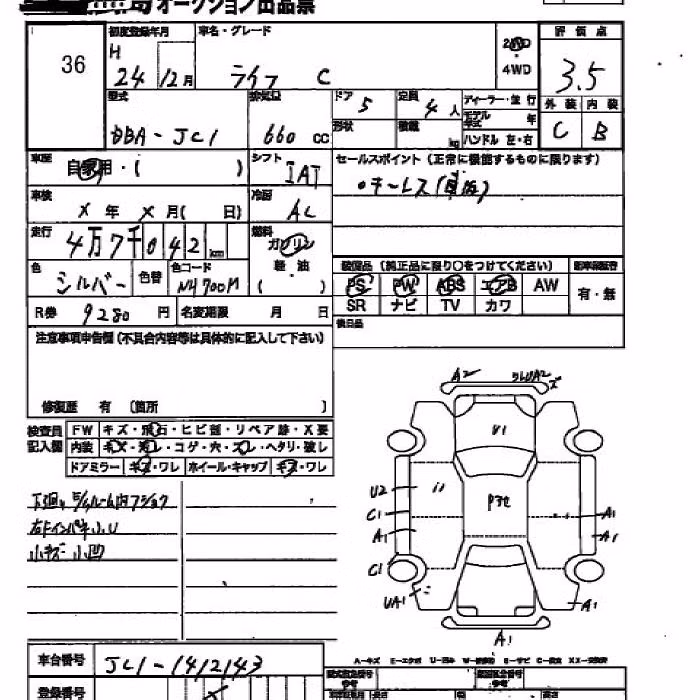 オークション出品票
36
初度登録年月 車名・グレード
H 24年 12月 ライフ C
2WD
4WD
評価点
3.5
外装 内装
C B
型式 DBA-JC1
排気量 660 cc
ドア 5
形状
定員 4人
積載 kg
ディーラー・並行
モデル年式 年
ハンドル 左・右
車歴 自家用・( )
シフト IAT
セールスポイント(正常に機能するものに限ります)
・キーレス(
車検 X年 X月( 日)
冷房 AC
走行 4万7千042km
燃料 ガソリン
軽・油
( )
色 シルバー 色替 色コード NH700M
装備品(純正品に限り○をつけてください)
PS PW ABS エアB AW
SR ナビ TV カワ
有・無
R券 9280円 名変期限 月 日
後日品
注意事項申告欄(不具合内容等は具体的に記入して下さい)
修復歴 有 (箇所 )
検査員記入欄
FW キズ・飛石・ヒビ割・リペア跡・X要
内装 キズ・汚レ・コゲ・穴・スレ・ヘタリ・破レ
ドアミラー キズ・ワレ ホイール・キャップ キズ・ワレ
小キズ 小凹
A2
U1
U2
C1
A1
C1
UA1
A1
A1
A1
A1
車台番号 JC1-1412143
登録番号
A-キズ E-エクボ